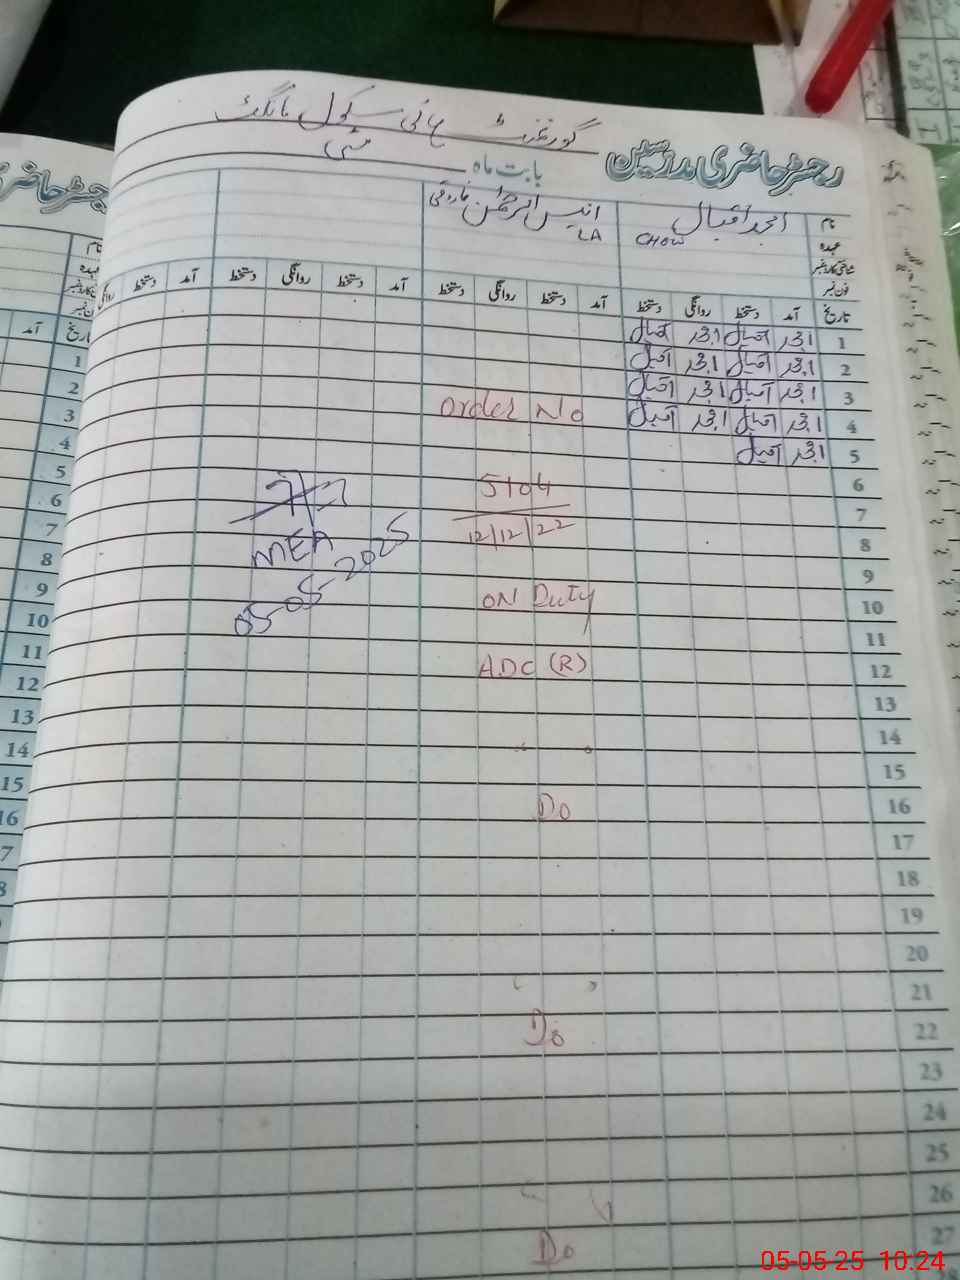 گورنمنٹ ہائی سکول مانگٹ
رجسٹر حاضری مدرسین
بابت ماہ مئی
نام امجد اقبال انیس الرحمٰن فاروقی
عہدہ CHOW LA
شناختی کارڈ نمبر
فون نمبر
تاریخ آمد دستخط روانگی دستخط آمد دستخط روانگی دستخط آمد دستخط روانگی دستخط
1 امجد اقبال امجد اقبال
2 امجد اقبال امجد اقبال
3 امجد اقبال امجد اقبال
4 امجد اقبال امجد اقبال
Order No
5 امجد اقبال
6
5104
7
12/12/22
8
MEA
9
05-05-2025
10
ON Duty
11
12
ADC (R)
13
14
15
16
Do
17
18
19
20
21
22
Do
23
24
25
26
27
Do
رجسٹر حاضر
نام
عہدہ
تاریخ آمد
1
2
3
4
5
6
7
8
9
10
11
12
13
14
15
16
05-05-25 10:24